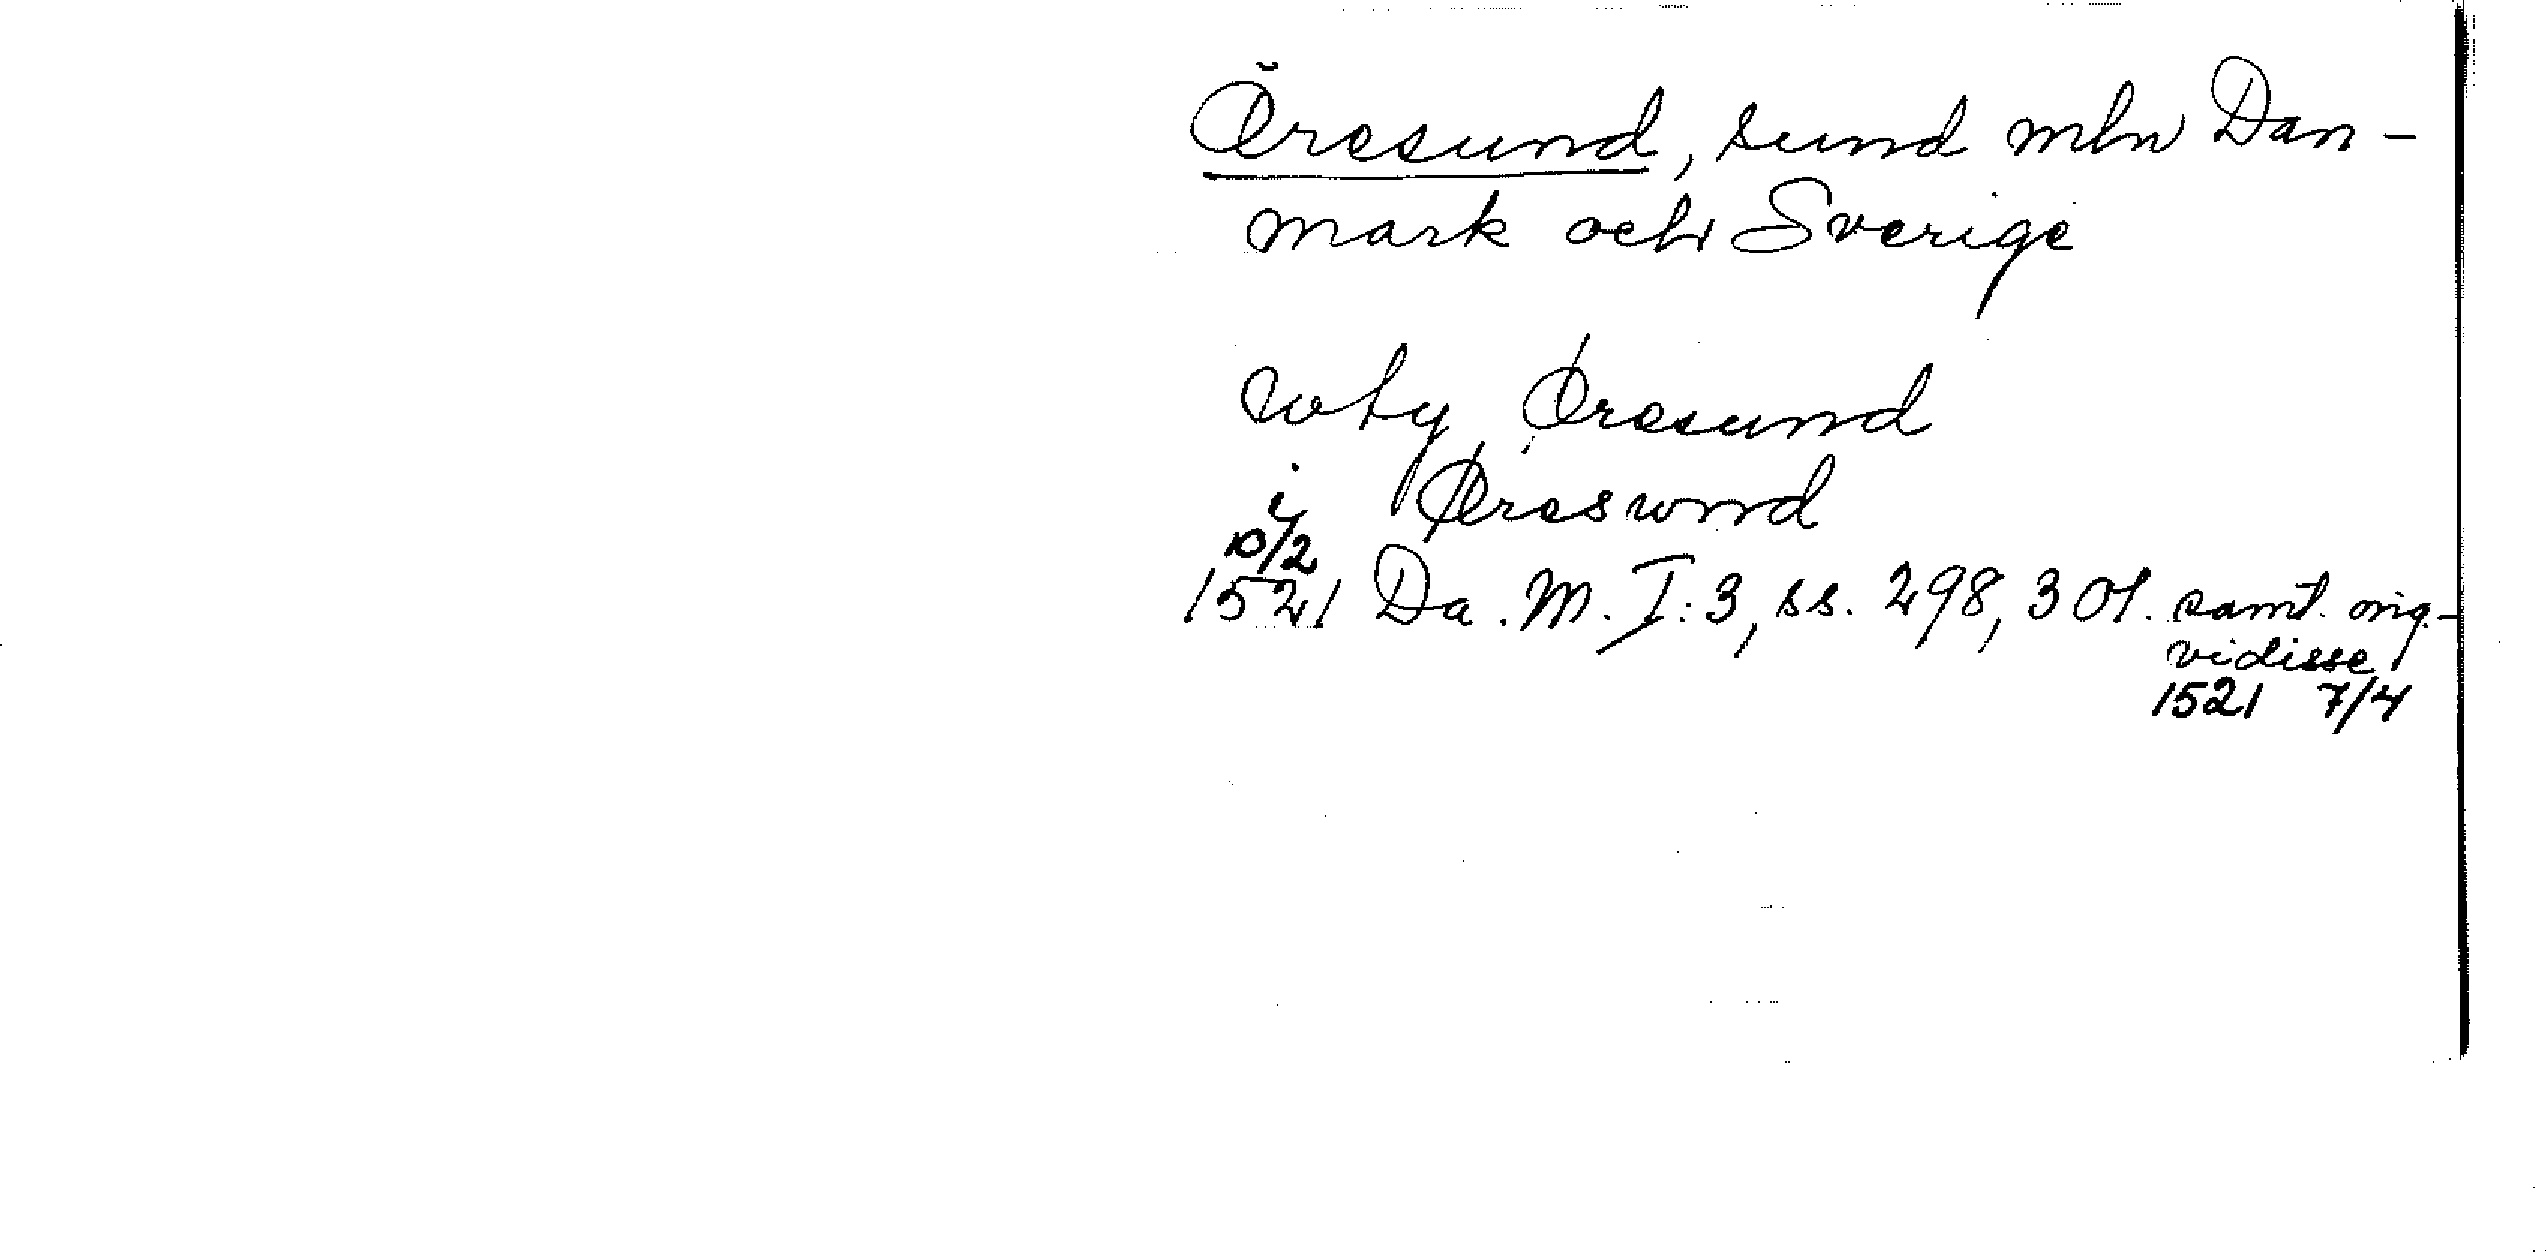 Öresund, sund mln Dan-
mark och Sverige
wty Øresund
i Øreswnd
10/2
1521 Da. M. I:3, ss. 298, 301. samt. orig.-
vidisse
1521 7/4